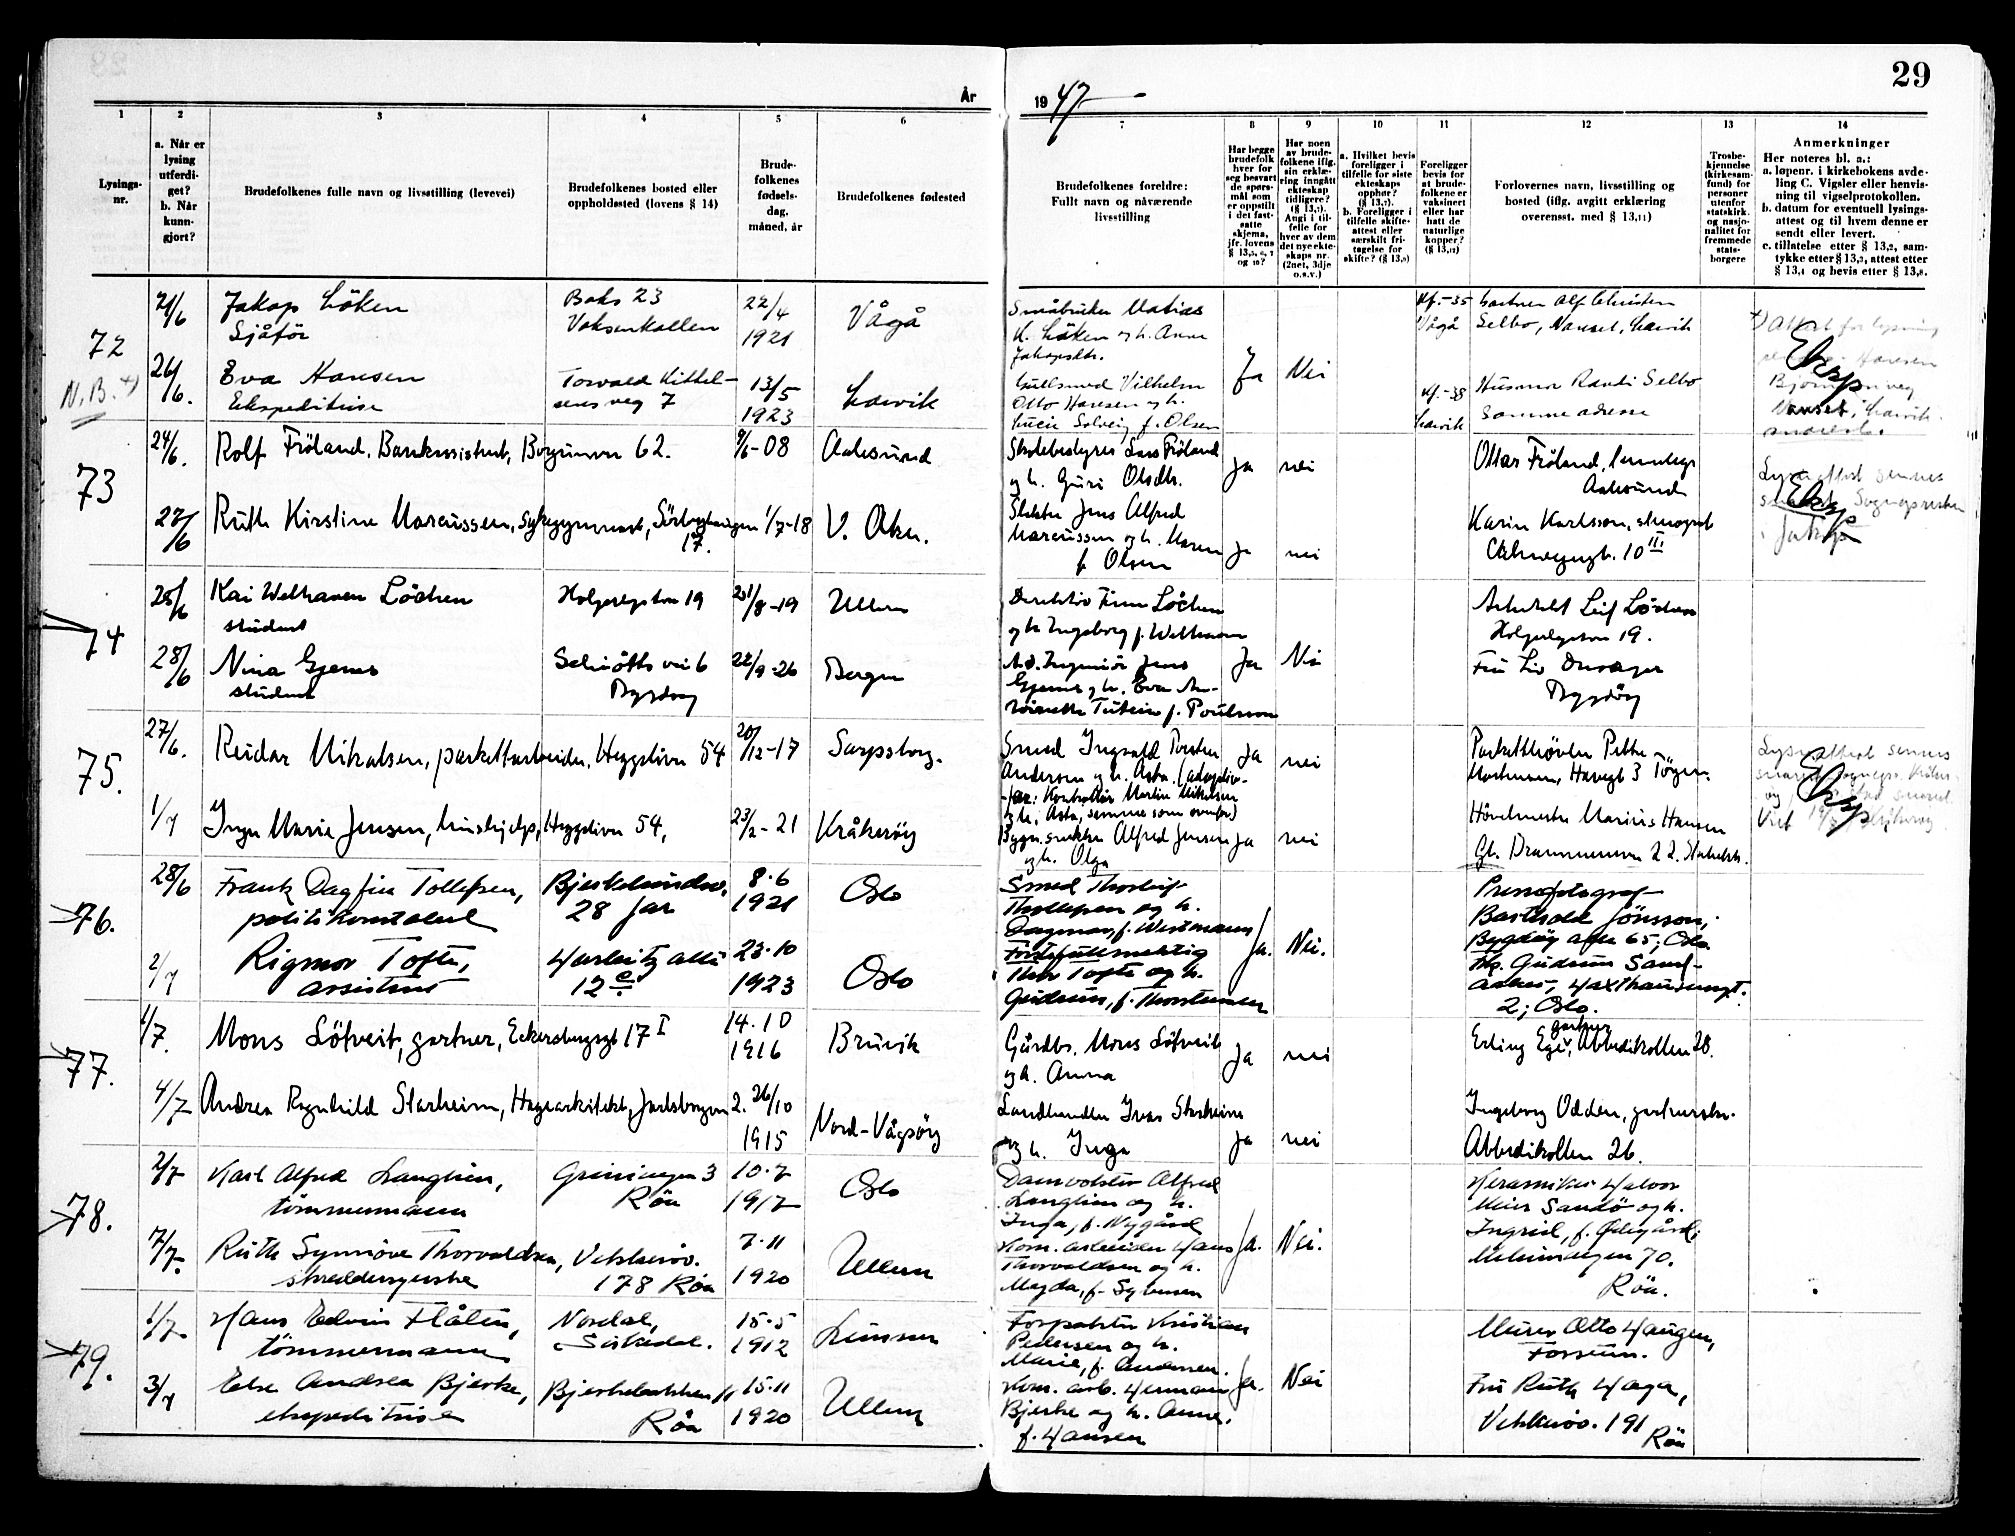 29
År
19 47
1
2
3
4
5
6
7
8
9
10
11
12
13
14
Lysings-
nr.
a. Når er
lysing
utferdi-
get?
b. Når
kunn-
gjort?
Brudefolkenes fulle navn og livsstilling (levevei)
Brudefolkenes bosted eller
oppholdssted (lovens § 14)
Brude-
folkenes
fødsels-
dag,
måned, år
Brudefolkenes fødested
Brudefolkenes foreldre:
Fullt navn og nåværende
livsstilling
Har begge
brudefolk
hver for
seg besvart
de spørs-
mål som
er oppstilt
i det fast-
satte
skjema,
Har noen
av brude-
folkene iflg.
sin erklæ-
ring inngått
ekteskap
tidligere?
a. Hvilket bevis
foreligger i
tilfelle for siste
ekteskaps
opphør?
b. Foreligger i
tilfelle skifte-
attest eller
særskilt fri-
tagelse for
skifte?
Foreligger
bevis for
at brude-
folkene er
vaksinert
eller har
hatt de
naturlige
kopper?
Forlovernes navn, livsstilling og
bosted (iflg. avgitt erklæring
overensst. med § 13,11)
Trosbe-
kjennelse
(kirkesam-
fund) for
personer
utenfor
statskirk.
og nasjo-
nalitet for
fremmede
stats-
borgere
Anmerkninger
Her noteres bl. a.:
a. løpenr. i kirkebokens avde-
ling C. Vigsler eller henvis-
ning til vigselprotokollen.
b. datum for eventuell lysings-
attest og til hvem denne er
sendt eller levert.
c. tillatelse etter § 13,2, sam-
tykke etter § 13,3, attest etter
§ 13,4 og bevis etter § 13,8.
72
N.B.
21/6
Jakop Löken
Sjåfør
Boks 23
Voksenkollen
22/4
1921
Vågå
Småbruker Matias
K. Löken og h. Anna
Jakopsdtr.
Ja
Nei
Kf.-35
Vågå
Gartner Alf Christen
Selbo, Nanset, Larvik
26/6.
Eva Hansen
Ekspeditrise
Torvald Kittel-
sens veg 7
13/5
1923
Larvik
Gullsmed Vilhelm
Otto Hansen og h.
Lucie Solveig f. Olsen
Kf.-38
Larvik
Husmor Randi Selbo
Samme adresse
Nanset, Larvik.
Eksp
73
24/6.
Rolf Fröland, Bankassistent, 62.
9/6-08
Aalesund
Skolebestyrer Lars Fröland
og h. Guri Olsdtr.
Ja
nei
Ottar Fröland,
Aalesund
27/6
Ruth Kirstine Marcussen, Sykegymnast,
17.
1/7-18
V. Aker.
Jens Alfred
Marcussen og h. Maren
f. Olsen
Ja
nei
Karin Karlsson, stenograf
10 III
Eksp
74
25/6
Kai Welhaven Löchen
student
Holgerlystvn 19
21/8-19
Ullern
Direktör Finn Löchen
og h Ingeborg f. Welhaven
Arkitekt Leif Löchen
Holgerlystvn 19.
28/6
Nina Gjerns
student
Schiötts vei 6
Bygdøy
22/9-26
Bergen
Ja
Nei
f. Poulsson
Fru Liv
Bygdöy
75.
27/6.
Reidar Mikalsen, parkettarbeider, Heggelivn 54
20/12-17
Sarpsborg.
Smed Ingvald Torsten
Andersen og h. Asta. (adoptiv-
for: Kontrollör Martin Mikalsen
og h. Asta, samme som ovenfor)
Ja
nei
Mortensen, Havegt 3 Tögen.
1/7
Inger Marie Jensen, Heggelivn 54,
23/2-21
Kråkeröy
Bygn.snekker Alfred Jensen
og h. Olga
Ja
nei
Marius Hansen
Gl. Drammensvn 22. Stabekk.
Eksp
76.
28/6
Frank Dagfin Tollefsen,
politikonstabel
Bjerkelundsv.
28 Jar
8.6
1921
Oslo
Smed Thorleif
Thollefsen og h.
Dagmar, f. Westmann
Ja.
Nei.
Pressefotograf
Barthold Jönsson,
Bygdöy alle 65, Oslo
2/7
Rigmor Tofte,
assistent
Harbitz alle
12 c.
23.10
1923
Oslo
Forstfullmektig
Thor Tofte og h.
Gudrun, f. Thorstensen
Frk. Gudrun Sand-
aker, Waxthausensgt.
2, Oslo.
77.
1/7.
Mons Löfveit, gartner, Eckersbergsgt 17 I
14.10
1916
Bruvik
Gårdbr. Mons Löfveit
og h. Anna
Ja
nei
gartner
Erling Egi, Abbedikollen 28.
4/7
Andrea Ragnhild Starheim, Hagearkitekt, Jarlsborgvn 2.
26/10
1915
Nord-Vågsöy
Landhandler Ivar Starheim
og h. Inga
Ja
nei
Ingeborg Odden,
Abbedikollen 26.
78.
2/7
Karl Alfred Langlien,
tömmermann
Griniveyen 3
Röa
10.7
1917
Oslo
Damvokter Alfred
Langlien og h.
Inga, f. Nygård
Ja.
Nei.
Keramiker Halvor
Meier Sandö og h.
Ingrid, f. Ödegård,
70.
Röa.
7/7.
Ruth Synnöve Thorvaldsen,
skreddersyerske
Vekkeröv.
178 Röa
7.11
1920
Ullern
Kom. arbeider Hans
Thorvaldsen og h.
Magda, f. Syversen
79.
1/7
Hans Edvin Flåten,
tömmermann
Nordal,
Sörkedal.
15.5
1912
Lunner
Forpakter Kristian
Pedersen og h.
Marie, f. Andersen.
Ja.
Nei
Murer Otto Haugen,
Fossum.
3/7
Else Andrea Bjerke,
ekspeditrise
Bjerkebakken 11
Röa
15.11
1920
Ullern
Kom. arb. Herman
Bjerke og h. Anna,
f. Hansen
Fru Ruth Haga,
Vekkeröv. 191
Röa